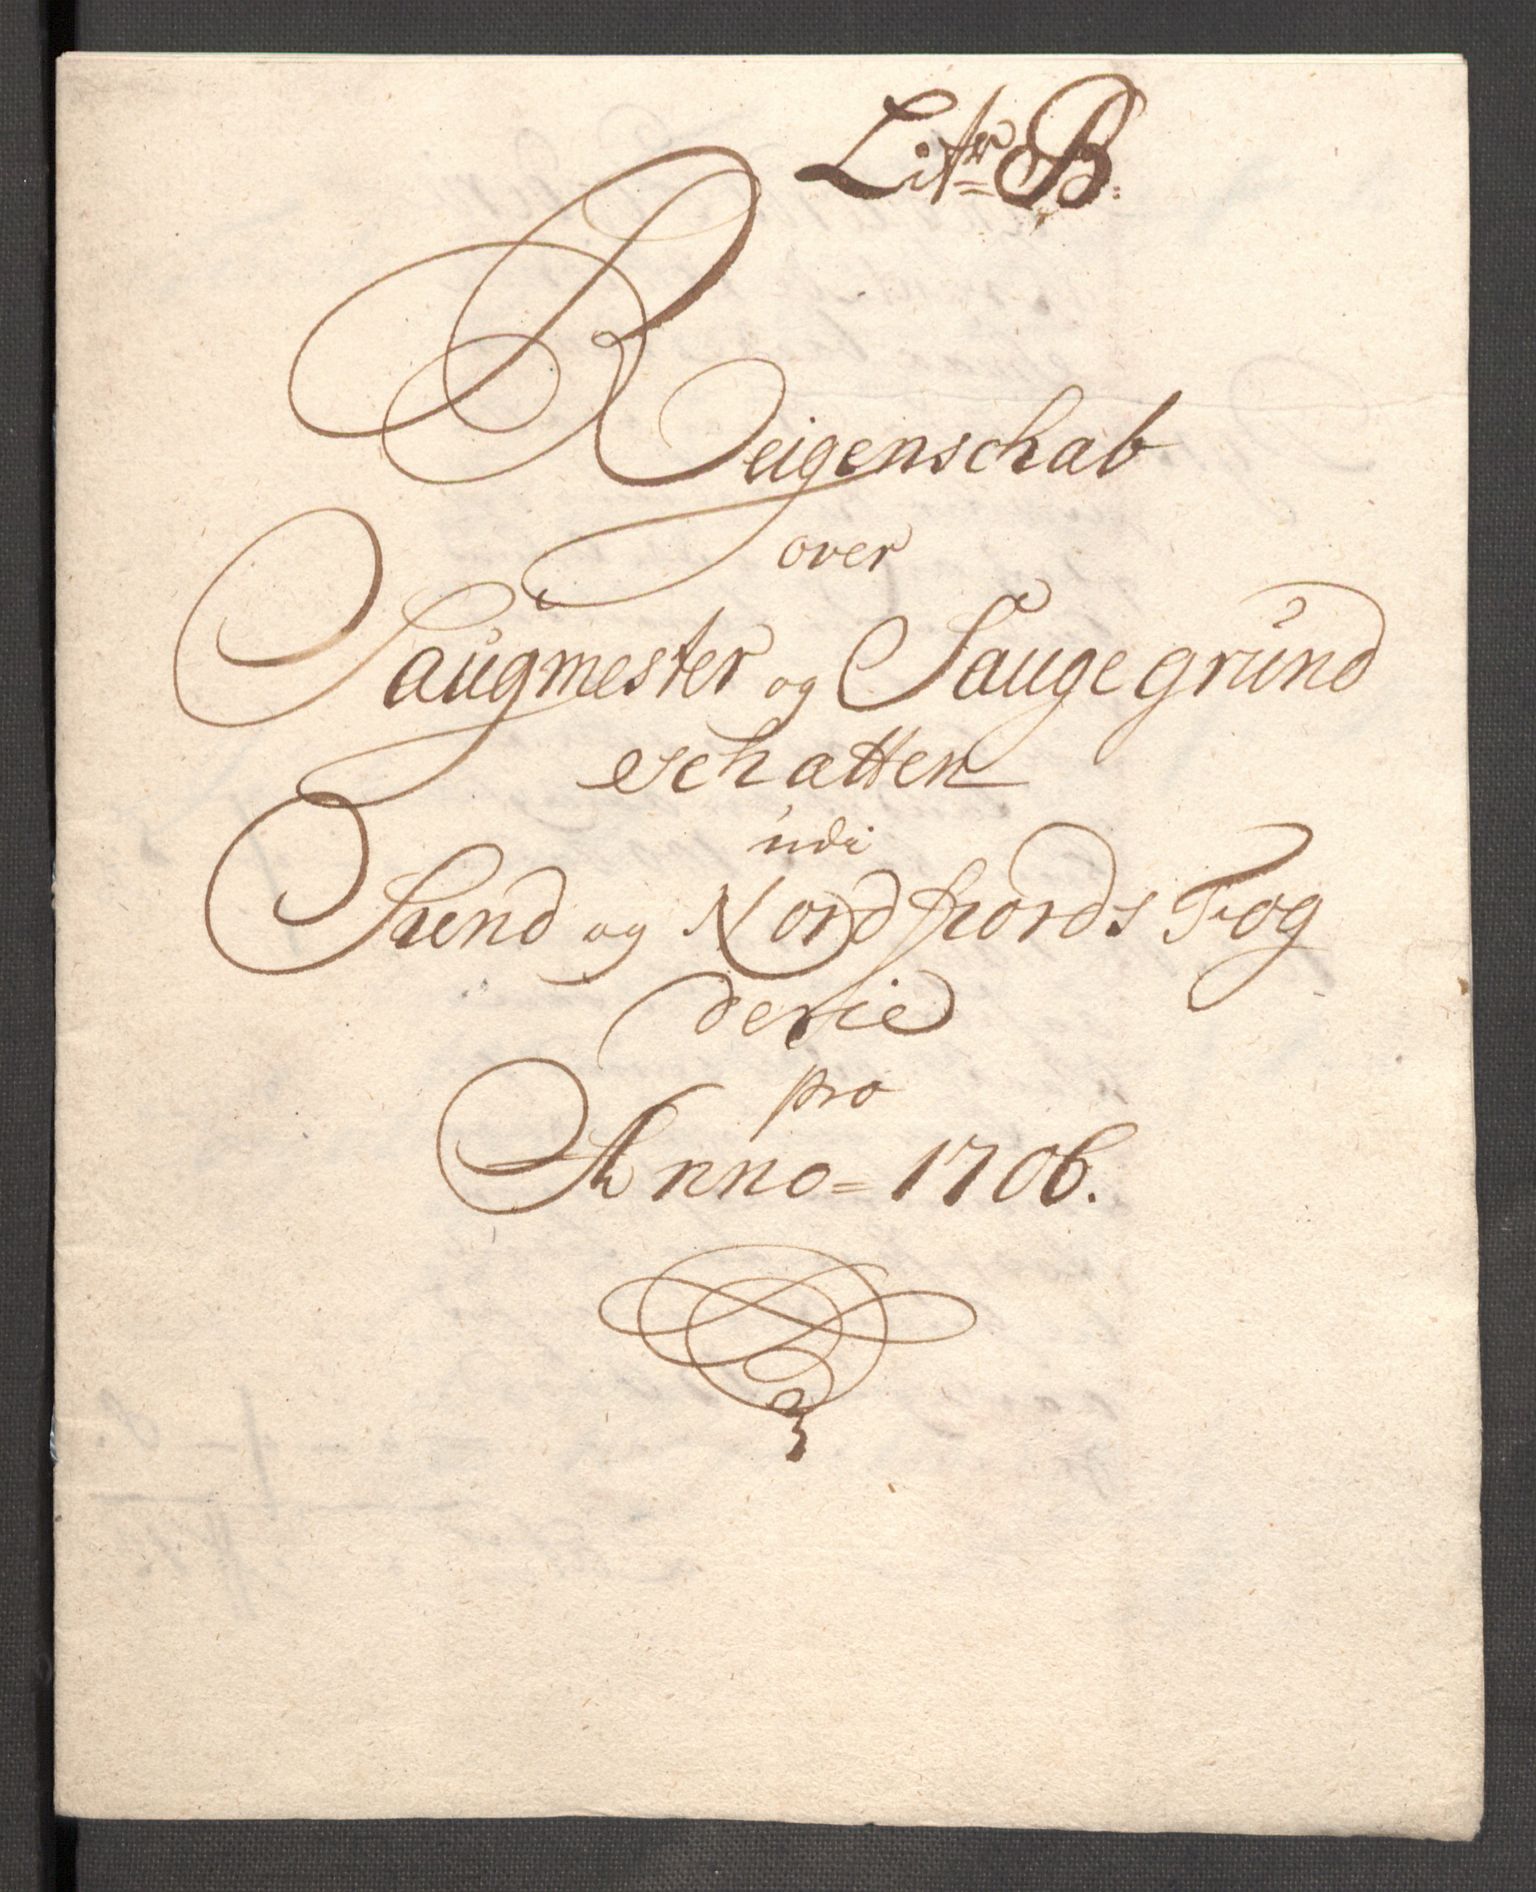 Litr B.
Reigenschab
over
Saugmester og Saugegrund
schatten
udi
Sund og Nordfiords Fog
derie
pro
Anno = 1706.